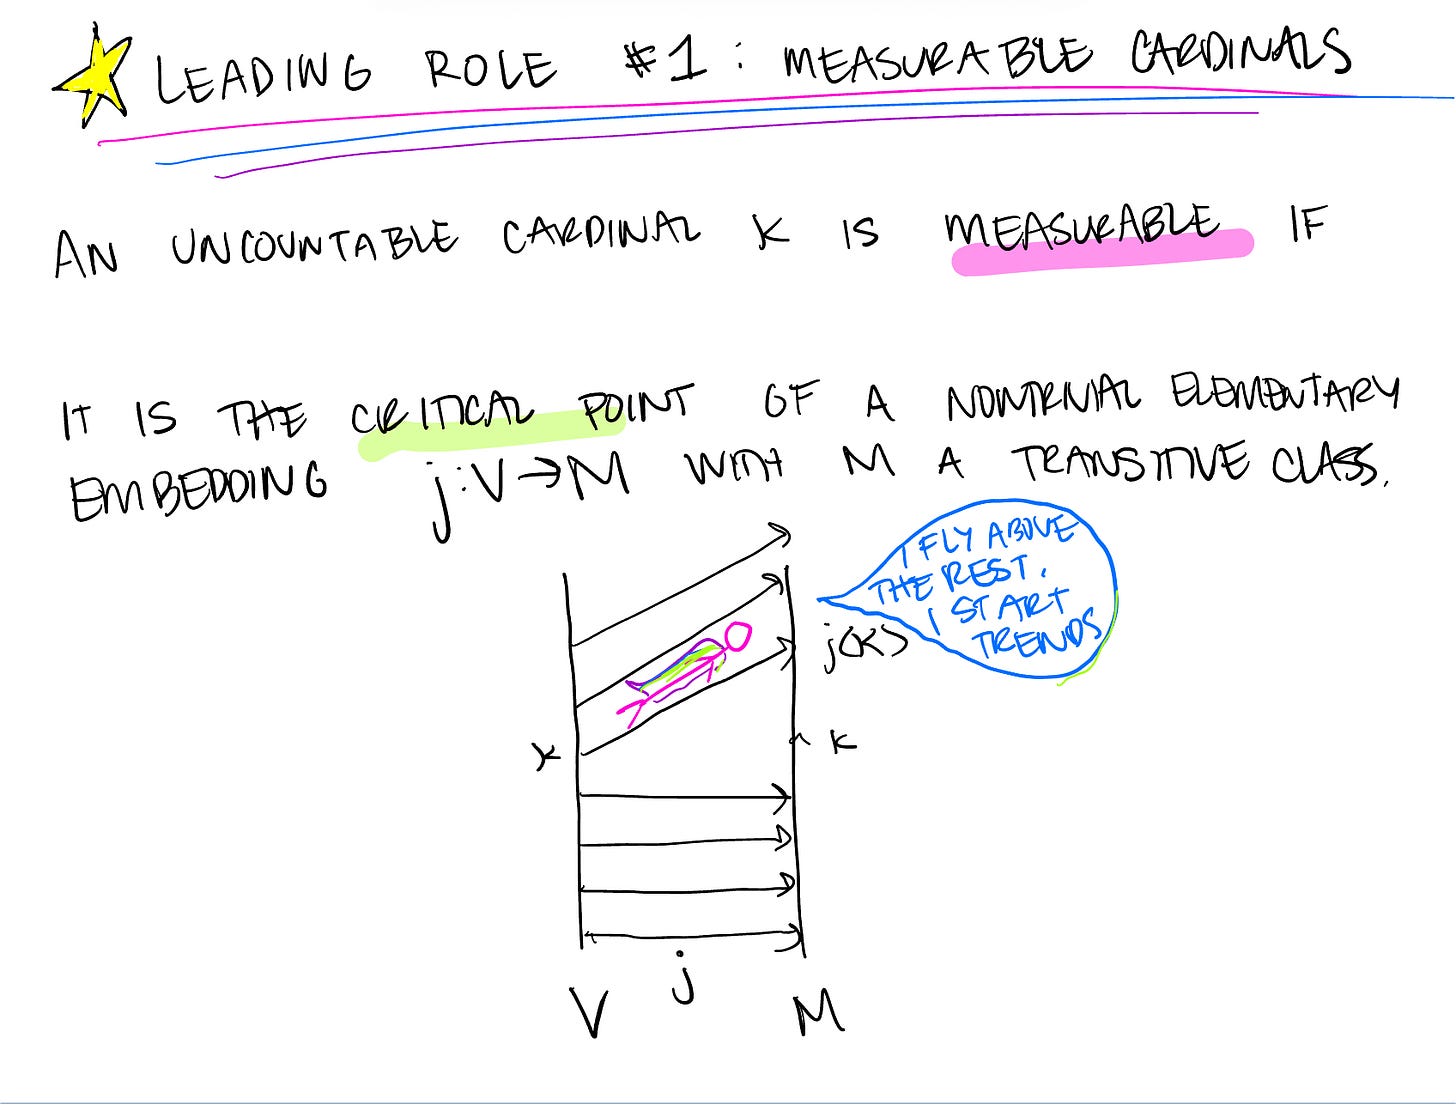 LEADING ROLE #1: MEASURABLE CARDINALS
AN UNCOUNTABLE CARDINAL K IS MEASURABLE IF
IT IS THE CRITICAL POINT OF A NONTRIVIAL ELEMENTARY
EMBEDDING j:V→M WITH M A TRANSITIVE CLASS.
I FLY ABOVE
THE REST.
I START
TRENDS
j(K)
K
K
j
V
M